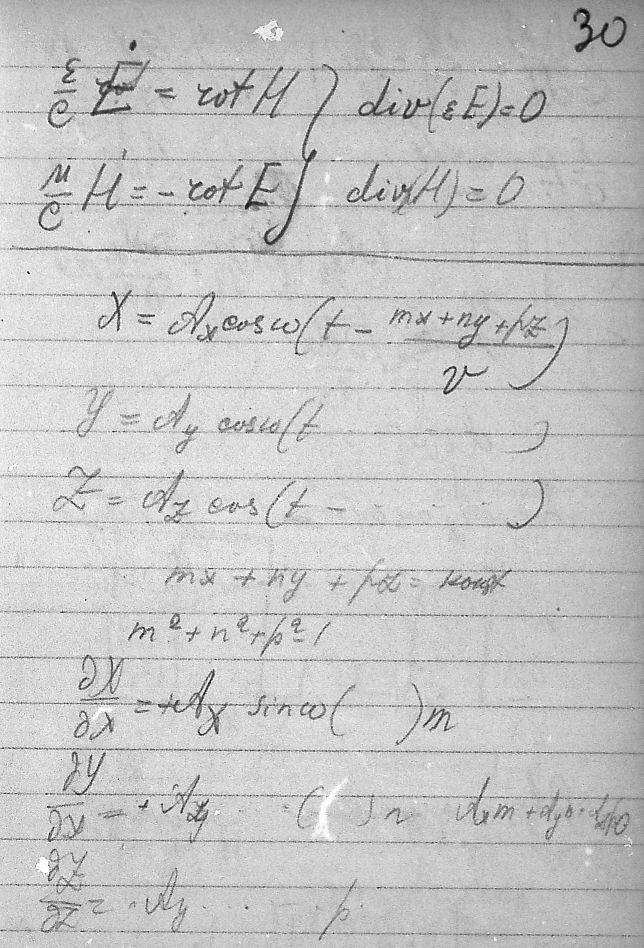 30
ε/c Ė = rot H } div(εE)=0
μ/c Ḣ = - rot E } div(H) = 0
X = A_x cos ω(t - (mx+ny+pz)/v)
Y = A_y cos ω(t . . . . )
Z = A_z cos (t - . . . . )
mx + ny + pz = конст
m² + n² + p² = 1
∂X/∂x = + A_x sin ω( ) m
∂Y/∂x = + A_y . . ( ) n A_x m + A_y n + A_z p = 0
∂Z/∂z = . A_y . . . . p.